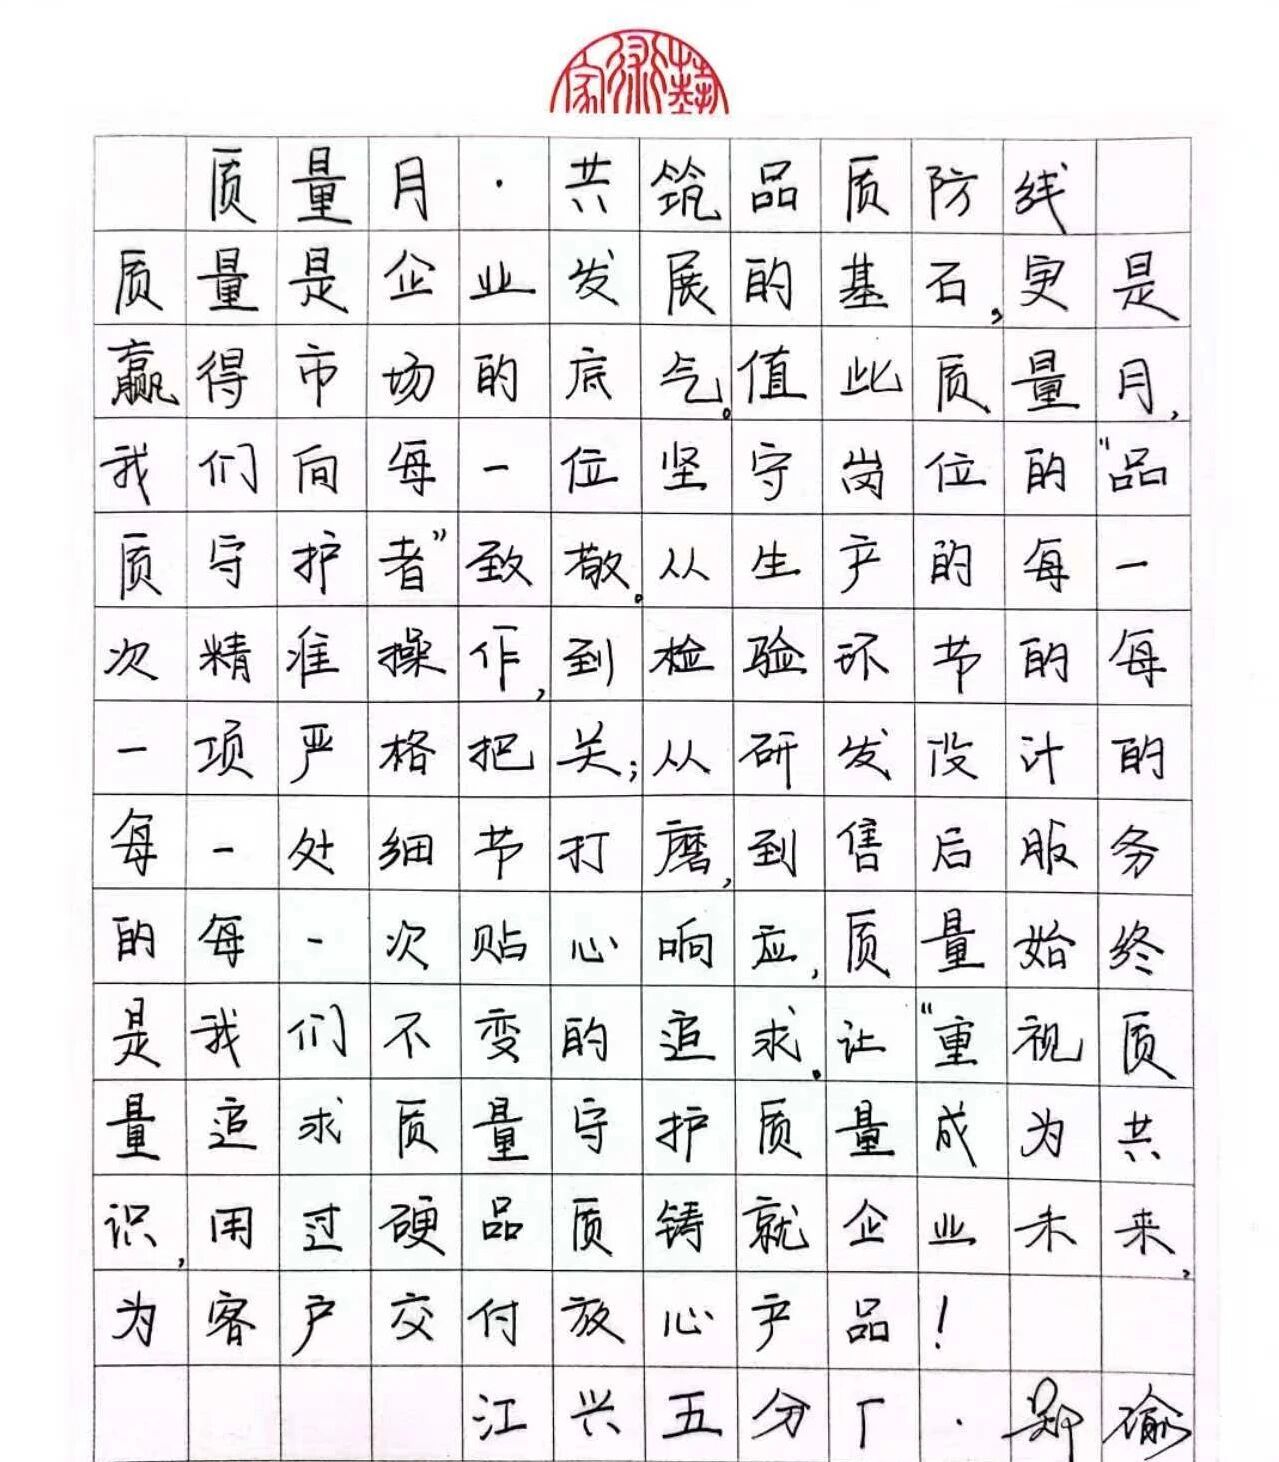 质量月·共筑品质防线
质量是企业发展的基石,更是
赢得市场的底气。值此质量月,
我们向每一位坚守岗位的“品
质守护者”致敬。从生产的每一
次精准操作,到检验环节的每
一项严格把关;从研发设计的
每一处细节打磨,到售后服务
的每一次贴心响应,质量始终
是我们不变的追求。让“重视质
量追求质量守护质量成为共
识,用过硬品质铸就企业未来,
为客户交付放心产品!
江兴五分厂·